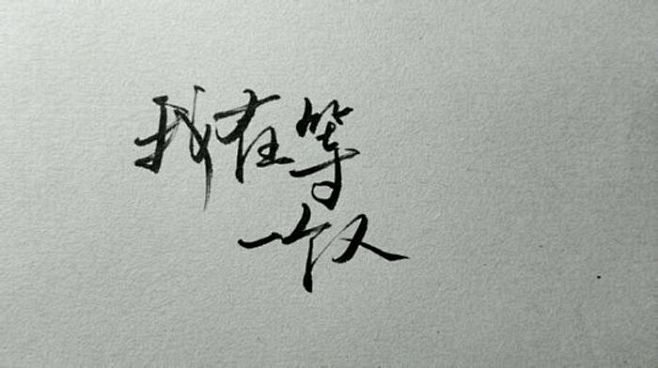 我在等
一个人